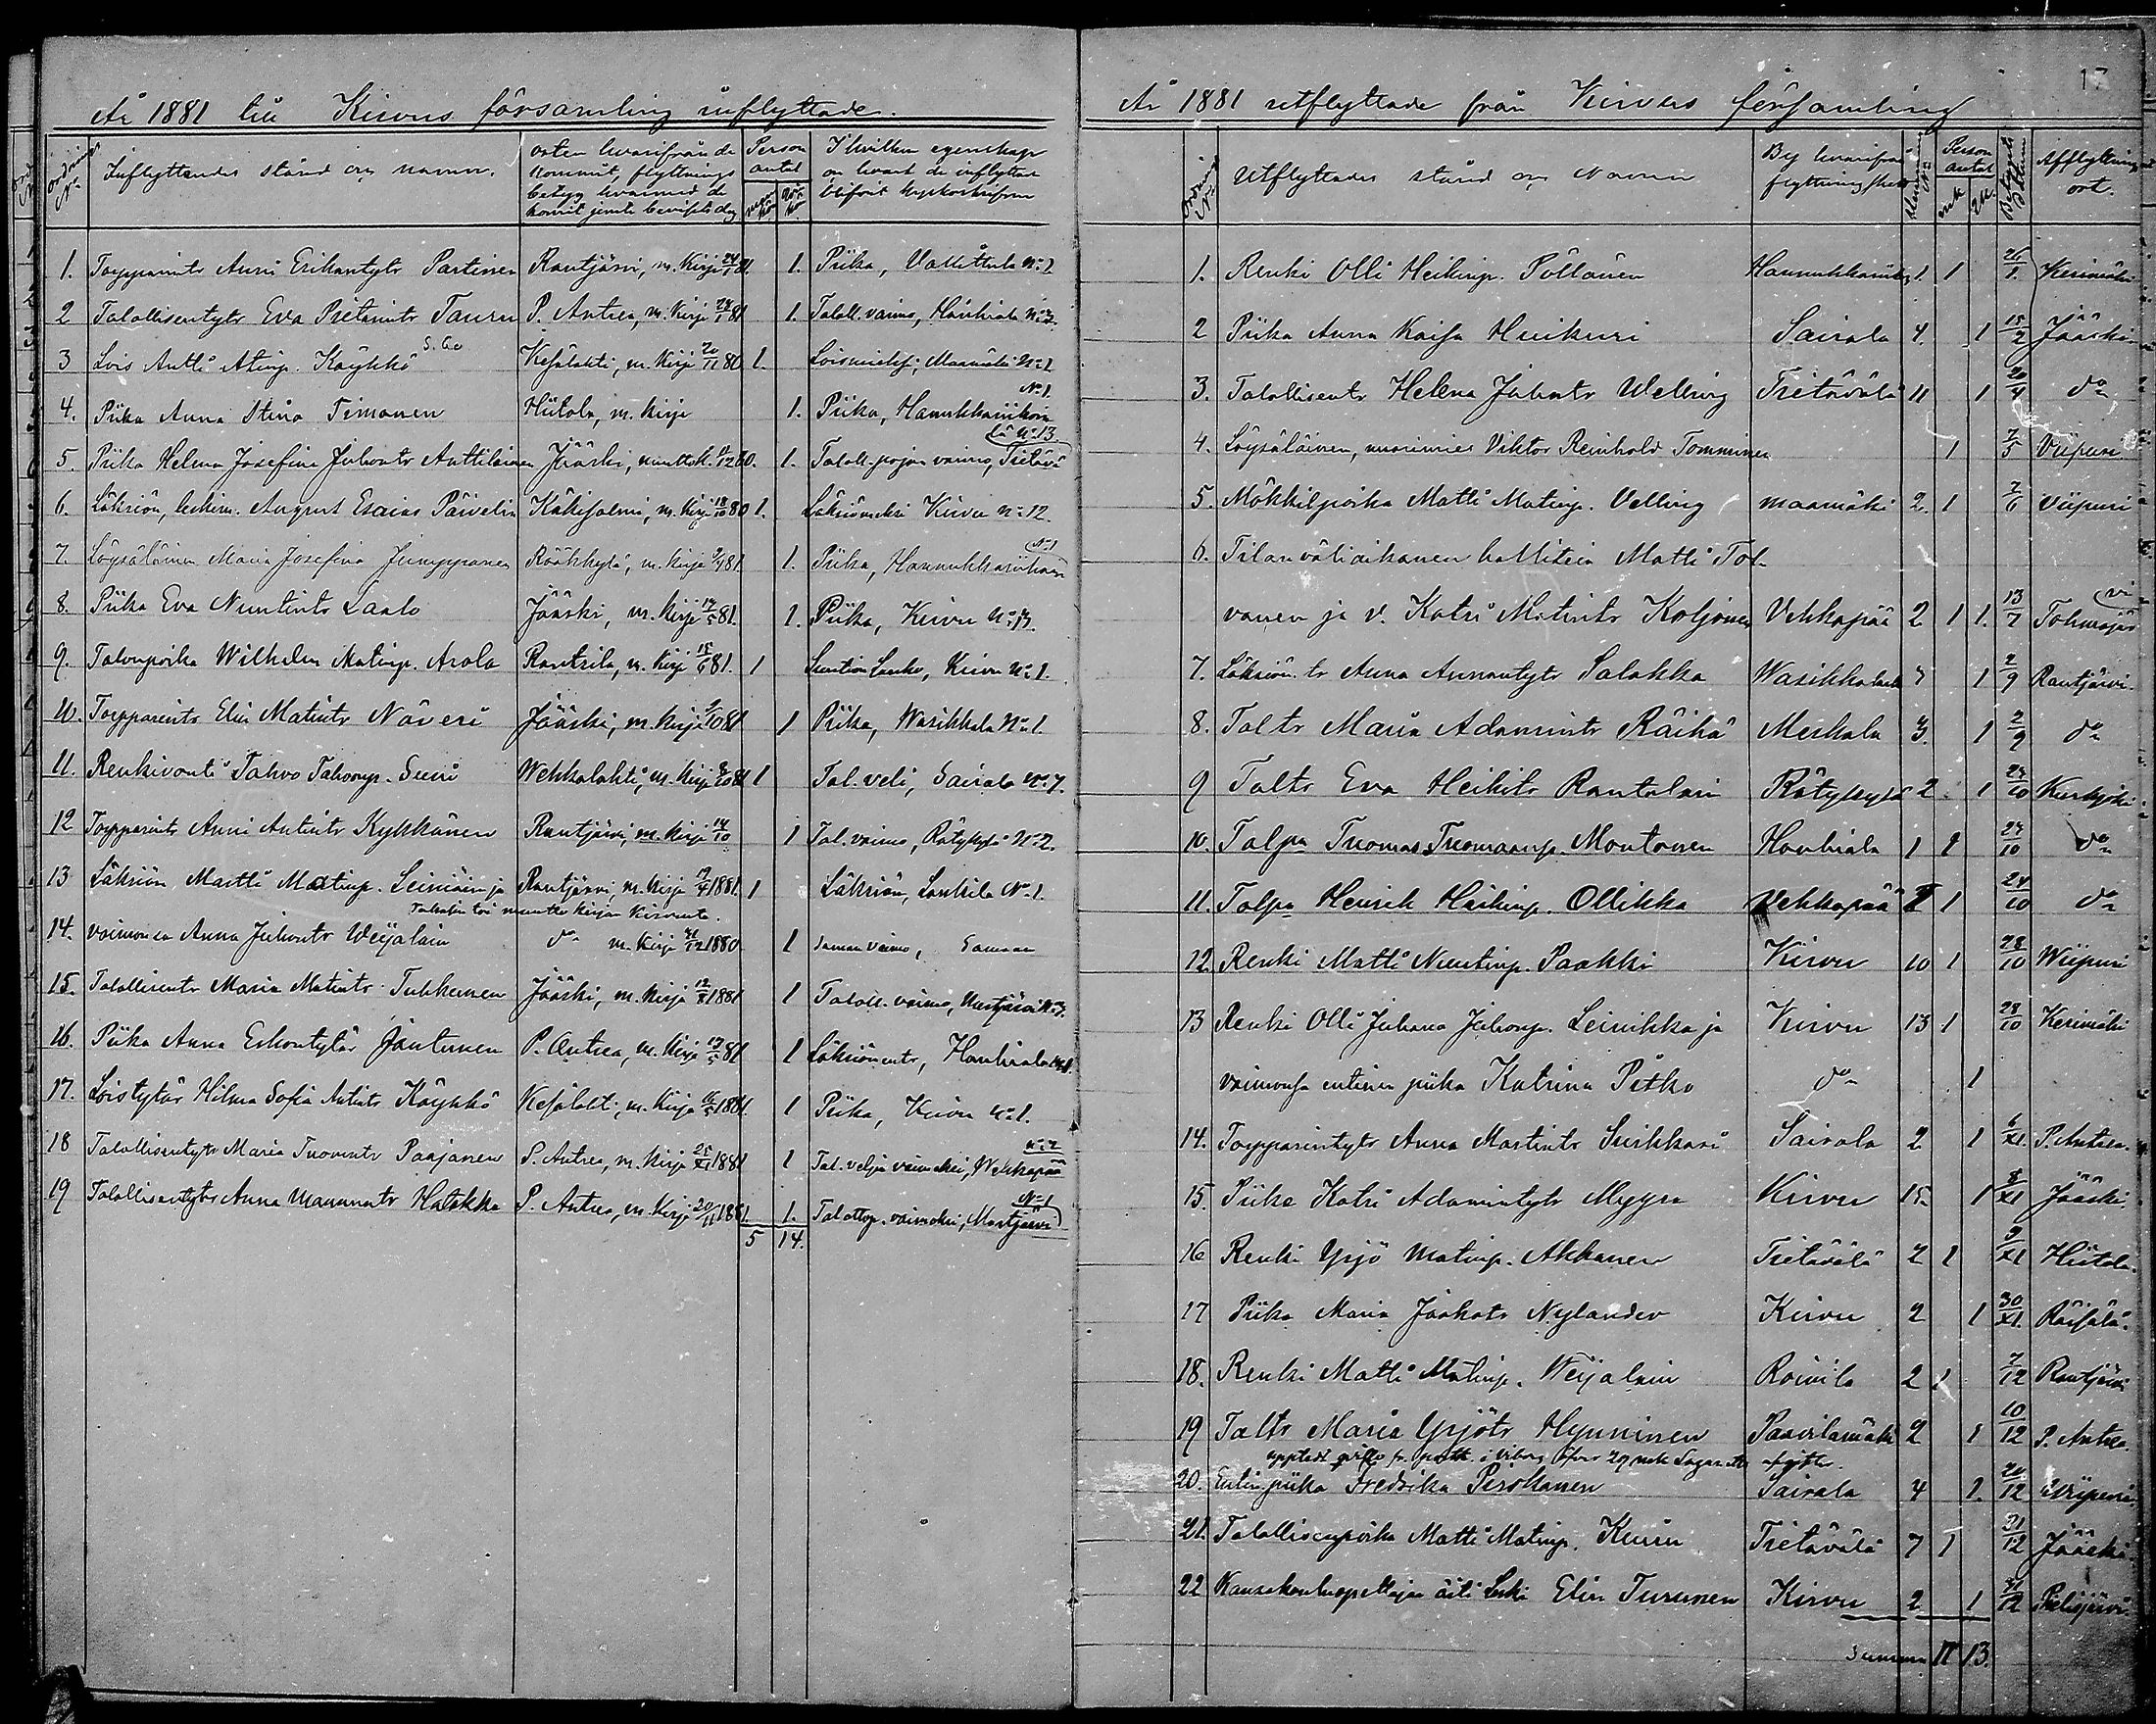 År 1881 till Kirvus församling inflyttade.
Ordnings No
Inflyttandes stånd och namn.
orten hvarifrån de kommit, flyttnings betyg hvarmed de kommit jemte bevisets dag
Person antal
I hvilken egenskap och hvart de inflyttat
1. Torpparintr Anni Erikantytr Partinen Rautjärvi, m. kirja 24/1 81. 1. Piika, Vallittula No 2
2 Talollisentytr Eva Pietarintr Tauru P. Antrea, m. kirja 24/1 81 1. Taloll. vaimo, Hauhiala No 3.
3 Lois Antti Atinp. Käykkö Kesälahti, m. kirja 20/11 80 1. Loismieheksi, Maamäki No 2
4. Piika Anna Stina Timonen Hiitola, m. kirja 1. Piika, Hannukkaiskorn No 1.
5. Piika Helena Josefina Juhontr Anttilainen Jääski, muuttok. 12 80. 1. Taloll. pojan vaimo, Tietävä lä No 13.
6. Läksiön, leskim. August Esaias Päivelin Käkisalmi, m. kirja 18/10 80 1. Läksiömeksi Kirvu No 12.
7. Löysäläinen Maria Josefina Jumppanen Rääkkylä, m. kirja 81. 1. Piika, Hannukkaiskorn No 1
8. Piika Eva Nuutintr Laalo Jääski, m. kirja 17/5 81. 1. Piika, Kirvu No 13.
9. Talonpoika Wilhelm Matinp. Arola Rautjärvi, m. kirja 15/6 81. 1 Suntion Lanko, Kirvu No 1.
10. Torpparintr Elin Matintr Näveri Jääski, m. kirja 10 81 1 Piika, Wasikkala No 1.
11. Renkivouti Tahvo Tahvonp. Suni Wehkalahti, m. kirja 10 81 1 Tal. veli, Sairala No 7.
12 Torpparintr Anni Antintr Kykkänen Rautjärvi, m. kirja 14/10 1 Tal. vaimo, Rätykylä No 2.
13 Läksiön Martti Matinp. Leiniäin ja Rautjärvi, m. kirja 17/4 1881. 1 Läksiön, Lankila No 1.
14. vaimonsa Anna Juhontr Weijalain do m. kirja 31/12 1880 1 saman vaimo, Samaan
15. Talollisentr Maria Matintr Tukkunen Jääski, m. kirja 12/8 1881 1 Taloll. vaimo, Mertjärvi No 3.
16. Piika Anna Erkontytär Jantunen P. Antrea, m. kirja 13/5 81 1 Läksiöntr, Hauhiala No 1.
17. Loistytär Hilma Sofia Antintr Käykkö Kesälahti, m. kirja 1881. 1 Piika, Kirvu No 1.
18 Talollisentytr Maria Tuomintr Paajanen P. Antrea, m. kirja 25/XI 1881 1 Tal. veljen vaimoksi, Wehkapää No 2
19 Talollisentytr Anna Maununtr Halakka P. Antrea, m. kirja 20/11 1881. 1. Talollisp. vaimoksi, Mertjärvi No 1
5 14.
17
År 1881 utflyttade från Kirvus församling
Ordnings No
Utflyttades stånd och Namn
By hvarifrån flyttning skett
Hemmans No
Person antal
mk. qk.
Betygets Datum
Afflyttnings ort.
1. Renki Olli Heikinp. Pöllänen Hannukkaisk 1 1 26/1. Kerimäki
2 Piika Anna Kaisa Huikuri Sairala 4. 1 15/2 Jääski
3. Talollisentr Helena Juhontr Welling Tietävälä 11 1 20/4 do
4. Löysäläinen, nuorimies Viktor Reinhold Tomminen 1 7/5 Viipuri
5. Mökkiläpoika Matti Matinp. Velling Maamäki 2. 1 7/6 Viipuri
6. Tilan väliaikanen hallitsia Matti Tol-
vanen ja v. Katri Matintr Koljonen Vehkapää 2 1 1. 13/7 Tohmajär vi
7. Läksiön tr Anna Annantytr Salakka Wasikkalank 7 1 2/9 Rautjärvi
8. Taltr Maria Adamintr Räihä Merkala 3. 1 2/9 do
9 Taltr Eva Heikitr Rautalain Rätykylä 2 1 24/10 Kurkijoki
10. Talpa Tuomas Tuomaanp. Montonen Hauhiala 1 1 24/10 do
11. Talpa Henrik Heikinp. Ollikka Vehkapää 1 1 24/10 do
12. Renki Matti Nuutinp. Paakki Kirvu 10 1 28/10 Wiipuri
13 Renki Olli Juhana Juhonp. Leinikka ja Kirvu 13 1 28/10 Kerimäki
vaimonsa entinen piika Katrina Pitko do 1
14. Torpparintytr Anna Martintr Suikkari Sairala 2 1 6/XI. P. Antrea.
15. Piika Katri Adamintytr Myyra Kirvu 15. 1 8/XI Jääski.
16 Renki Yrjö Matinp. Akkanen Tietävälä 2 1 9/XI Hiitola
17 Piika Maria Jaakotr Nylander Kirvu 2 1 30/XI. Räisälä.
18. Renki Matti Matinp. Weijalain Roivila 2 1 7/12 Rautjärvi
19 Taltr Maria Yrjötr Hynninen Paavilamäki 2 1 10/12 P. Antrea
20. Entin. piika Fredrika Pesthanen Sairala 4 1. 20/12 Wiipuri
21. Talollisenpoika Matti Matinp. Kuisn Tietävälä 7 1 31/12 Jääski
22 Kansakoulunopettajan äiti Leski Elin Turunen Kirvu 2 1 31/12 Pälkjärvi
Summa 11 13.